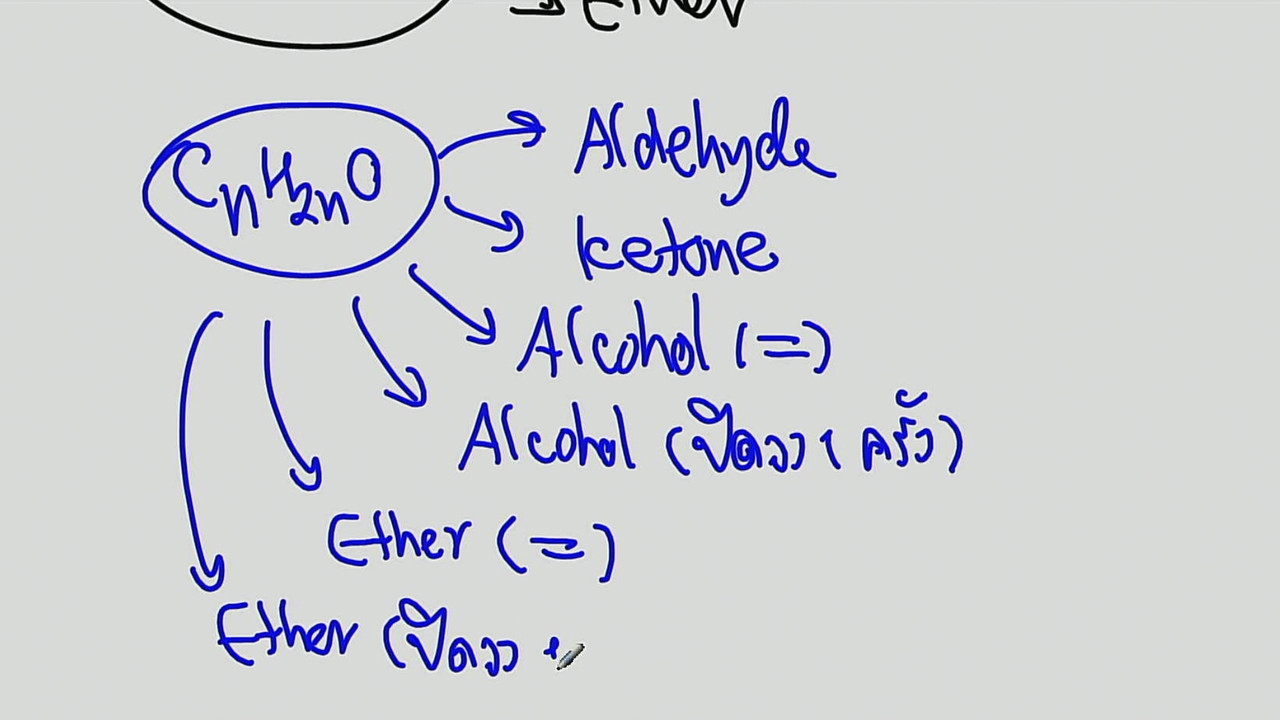 → Ether
CₙH₂ₙO
Aldehyde
ketone
Alcohol (=)
Alcohol (ปิดวง 1 ครั้ง)
Ether (=)
Ether (ปิดวง